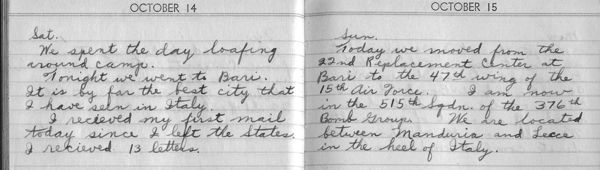 OCTOBER 14
Sat.
We spent the day loafing
around camp.
Tonight we went to Bari.
It is by far the best city that
I have seen in Italy.
I recieved my first mail
today since I left the States.
I recieved 13 letters.
OCTOBER 15
Sun.
Today we moved from the
22nd Replacement Center at
Bari to the 47th wing of the
15th Air Force. I am now
in the 515th Sqdn. of the 376th
Bomb Group. We are located
between Manduria and Lecce
in the heel of Italy.